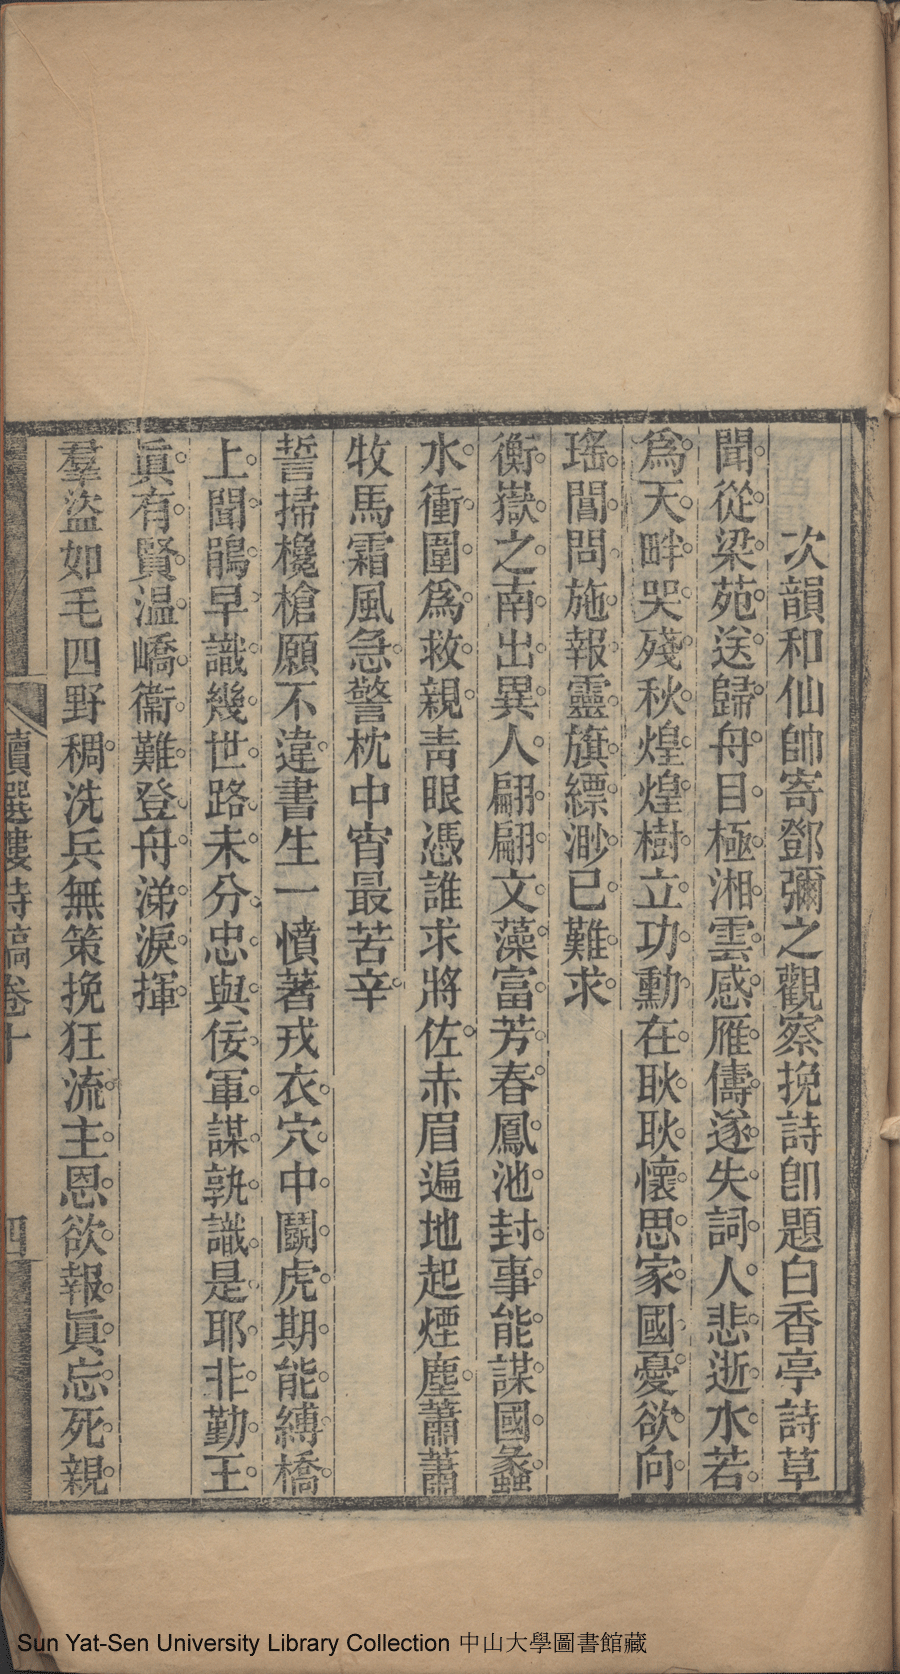 次韻和仙帥寄鄧彌之觀察挽詩卽題白香亭詩草
聞從梁苑送歸舟目極湘雲感雁儔遂失詞人悲逝水若
爲天畔哭殘秋煌煌樹立功勳在耿耿懷思家國憂欲向
瑤閶問施報靈旗縹渺已難求
衡嶽之南出異人翩翩文藻富芳春鳳池封事能謀國蠡
水衝圍爲救親靑眼憑誰求將佐赤眉遍地起煙塵蕭蕭
牧馬霜風急警枕中宵最苦辛
誓掃欃槍願不違書生一憤著戎衣穴中鬭虎期能縛橋
上聞鵑早識幾世路未分忠與佞軍謀孰識是耶非勤王
眞有賢温嶠衞難登舟涕淚揮
羣盜如毛四野稠洗兵無策挽狂流主恩欲報眞忘死親
讀選樓詩稿卷十
四
Sun Yat-Sen University Library Collection 中山大學圖書館藏